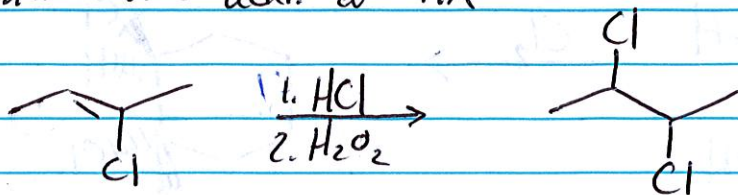 Cl
1. HCl
2. H₂O₂
Cl
Cl